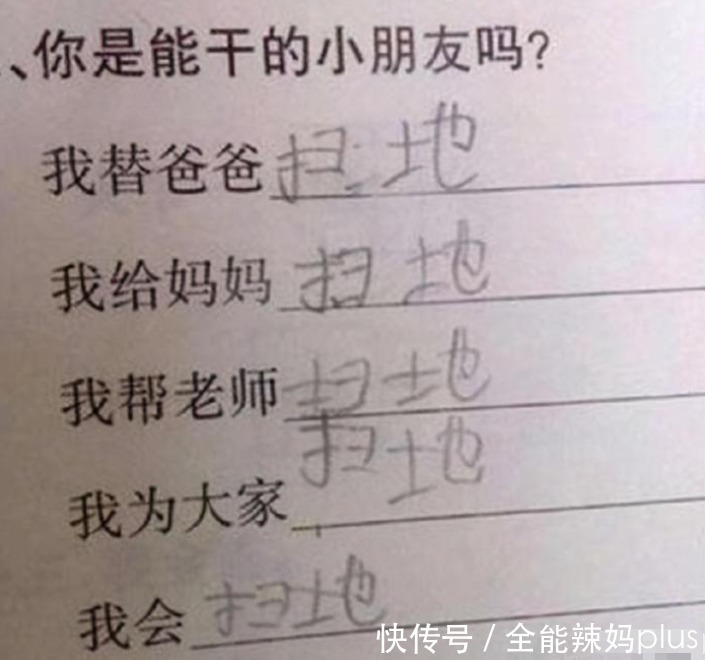 、你是能干的小朋友吗?
我替爸爸扫地
我给妈妈扫地
我帮老师扫地
我为大家扫地
我会扫地
快传号 / 全能辣妈plus